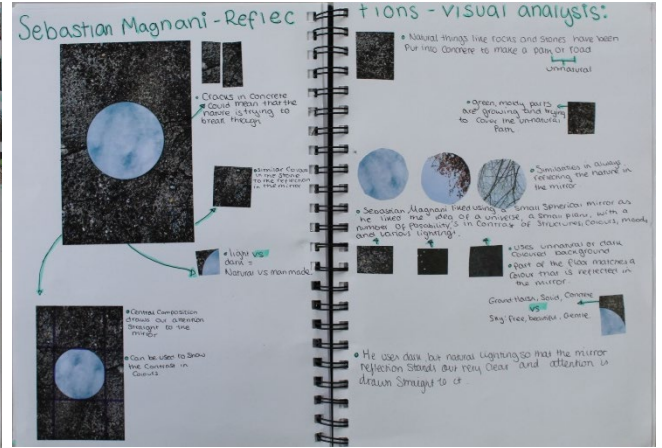 Sebastian Magnani - Reflec
tions - visual analysis:
• Cracks in Concrete
could mean that the
nature is trying to
break though
• Similar Colours
in the stone
to the reflection
in the mirror
• light vs
dark =
Natural vs man made.
• Central Composition
draws our attention
straight to the
mirror
• Can be used to show
the Contrast in
Colours
• Natural things like rocks and stones have been
Put into Concrete to make a path or road
unnatural
• Green, mossy parts
are growing and trying
to cover the unnatural
Path.
• Similarities in always
reflecting the nature in
the mirror
• Sebastian Magnani liked using a small Spherical mirror as
he liked the idea of a universe, a small planet, with a
number of Possability's in Contrast of Structures, Colours, moods
and various lighting.
• uses unnatural or dark
Coloured background
• Part of the floor matches a
Colour that is reflected in
the mirror.
Ground-Harsh, Solid, Concrete
VS
Sky-Free, beautiful, Gentle.
• He uses dark, but natural lighting so that the mirror
reflection Stands out very Clear and attention is
drawn Straight to it.